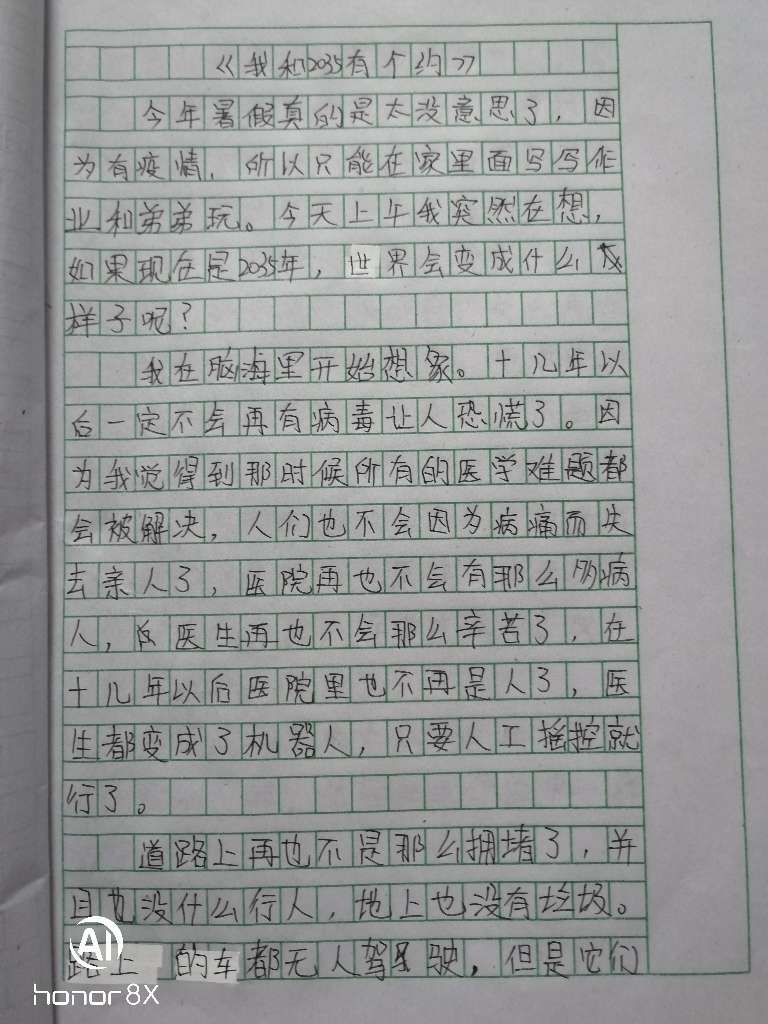 《我和2035有个约》
今年暑假真的是太没意思了，因
为有疫情，所以只能在家里面写写作
业和弟弟玩。今天上午我突然在想，
如果现在是2035年，世界会变成什么
样子呢？
我在脑海里开始想象。十几年以
后一定不会再有病毒让人恐慌了。因
为我觉得到那时候所有的医学难题都
会被解决，人们也不会因为病痛而失
去亲人了，医院再也不会有那么多病
人，医生再也不会那么辛苦了，在
十几年以后医院里也不再是人了，医
生都变成了机器人，只要人工摇控就
行了。
道路上再也不是那么拥堵了，并
且也没什么行人，地上也没有垃圾。
路上的车都无人驾驶，但是它们
AI
honor 8X